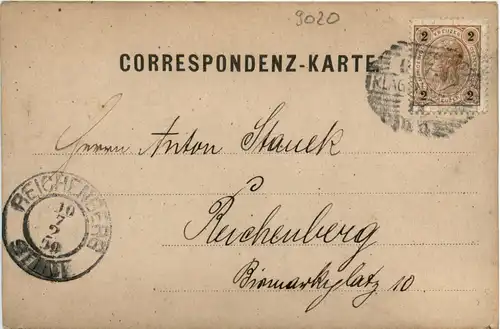 9020
CORRESPONDENZ-KARTE
2 2
KLAG
2 2
Herrn Anton Stanek
Reichenberg
Bismarkplatz 10
REICHENBERG
10
7
2
50
STADT